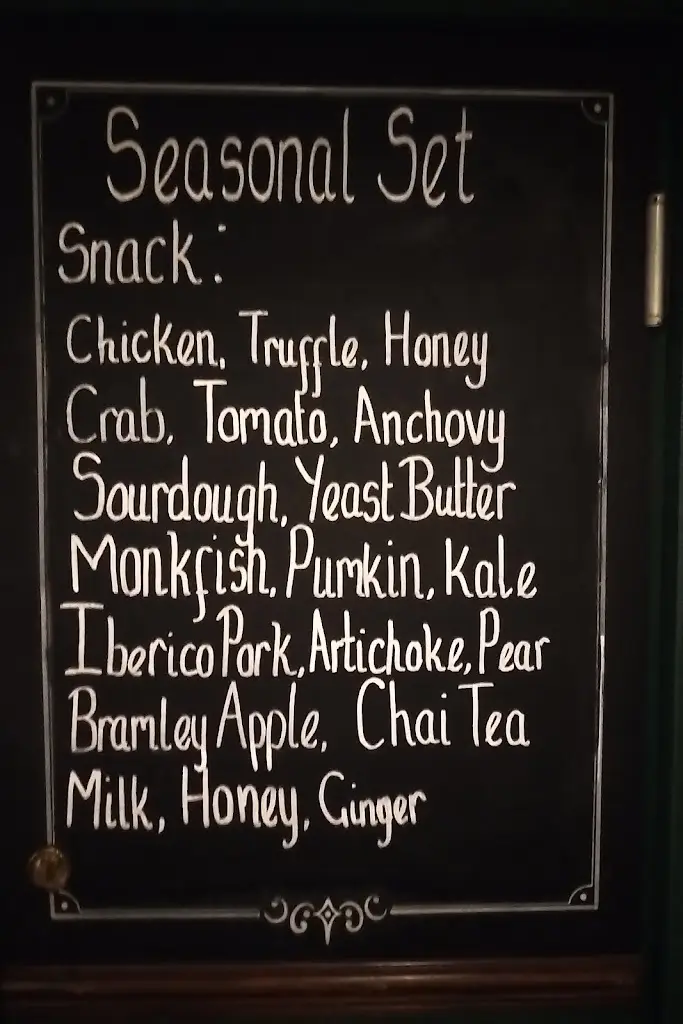 Seasonal Set
Snack:
Chicken, Truffle, Honey
Crab, Tomato, Anchovy
Sourdough, Yeast Butter
Monkfish, Pumkin, Kale
Iberico Pork, Artichoke, Pear
Bramley Apple, Chai Tea
Milk, Honey, Ginger